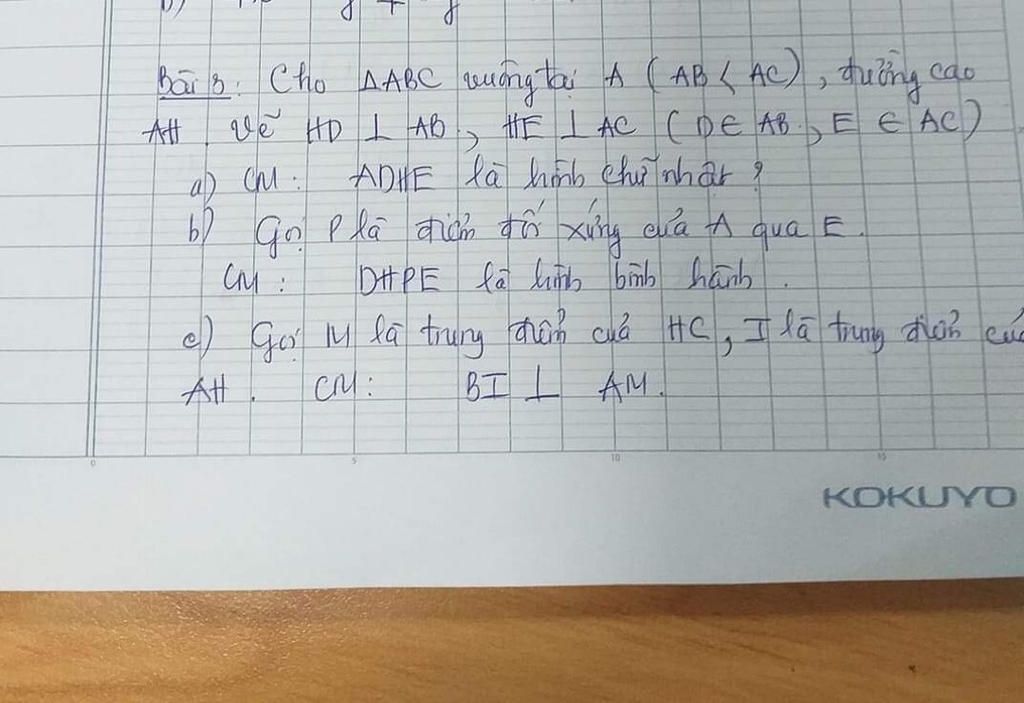 Bài 3: Cho △ABC vuông tại A (AB < AC), đường cao
AH. Vẽ HD ⊥ AB, HE ⊥ AC (D ∈ AB, E ∈ AC)
a) CM: ADHE là hình chữ nhật?
b) Gọi P là điểm đối xứng của A qua E.
CM: DHPE là hình bình hành.
c) Gọi M là trung điểm của HC, I là trung điểm của
AH. CM: BI ⊥ AM.
0 5 10 15
KOKUYO